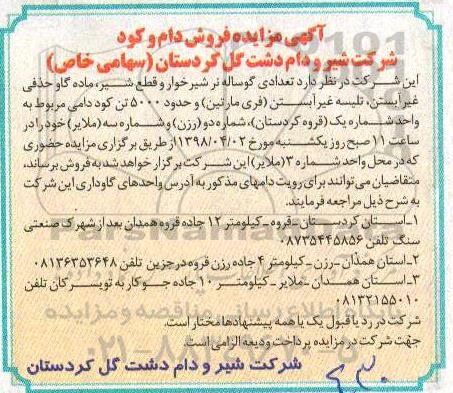 آگهی مزایده فروش دام و کود
شرکت شیر و دام دشت گل کردستان (سهامی خاص)
این شرکت در نظر دارد تعدادی گوساله نر شیر خوار و قطع شیر، ماده گاو حذفی
غیر آبستن، تلیسه غیر آبستن (فری مارتین) و حدود ۵۰۰۰ تن کود دامی مربوط به
واحد شماره یک (قروه کردستان)، شماره دو (رزن) و شماره سه (ملایر) خود را در
ساعت ۱۱ صبح روز یکشنبه مورخ ۱۳۹۸/۰۴/۰۲ از طریق برگزاری مزایده حضوری
که در محل واحد شماره ۳ (ملایر) این شرکت برگزار خواهد شد به فروش برساند،
متقاضیان می‌توانند برای رویت دامهای مذکور به آدرس واحدهای گاوداری این شرکت
به شرح ذیل مراجعه فرمایند.
۱_استان کردستان _قروه _کیلومتر ۱۲ جاده قروه همدان بعد از شهرک صنعتی
سنگ تلفن ۰۸۷۳۵۴۴۵۸۵۶
۲_استان همدان _رزن _کیلومتر ۴ جاده رزن قروه درجزین تلفن ۰۸۱۳۶۳۵۳۶۴۸
۳_استان همدان _ملایر _کیلومتر ۱۰ جاده جوکار به تویسرکان تلفن
۰۸۱۳۲۱۵۵۰۱۰
شرکت در رد یا قبول یک یا همه پیشنهادها مختار است.
جهت شرکت در مزایده پرداخت ودیعه الزامی است.
شرکت شیر و دام دشت گل کردستان